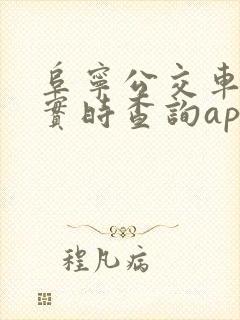 阜寧公交車
實時查詢ap
程凡病